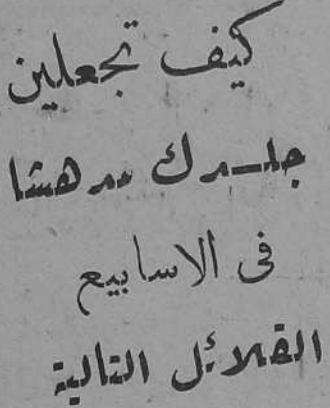 كيف تجعلين
جلدك مدهشا
فى الاسابيع
القلائل التالية